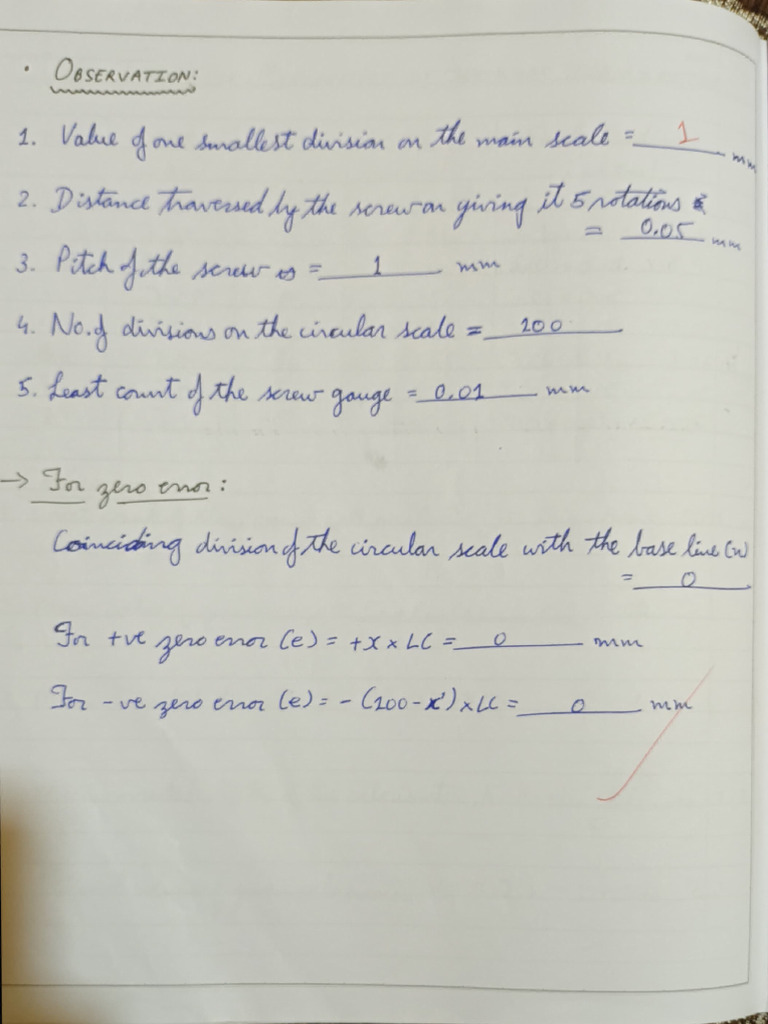 · OBSERVATION:
1. Value of one smallest division on the main scale = 1 mm
2. Distance traversed by the screw on giving it 5 rotations
= 0.05 mm
3. Pitch of the screw = 1 mm
4. No. of divisions on the circular scale = 100
5. Least count of the screw gauge = 0.01 mm
→ For zero error:
Coinciding division of the circular scale with the base line (n)
= 0
For +ve zero error (e) = +x × LC = 0 mm
For -ve zero error (e) = - (100 - x') × LC = 0 mm